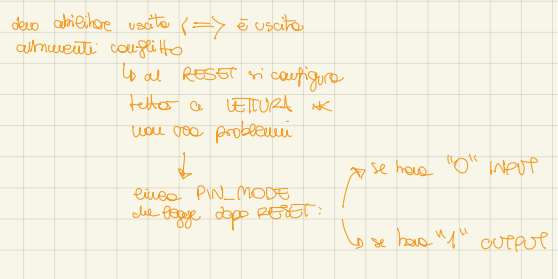 devo abilitare uscita <=> è uscita
altrimenti conflitto
↳ al RESET si configura
tutto a LETTURA
non ho problemi
↓
linea PIN_MODE
che legge dopo RESET:
→ se trova "0" INPUT
↳ se trova "1" OUTPUT